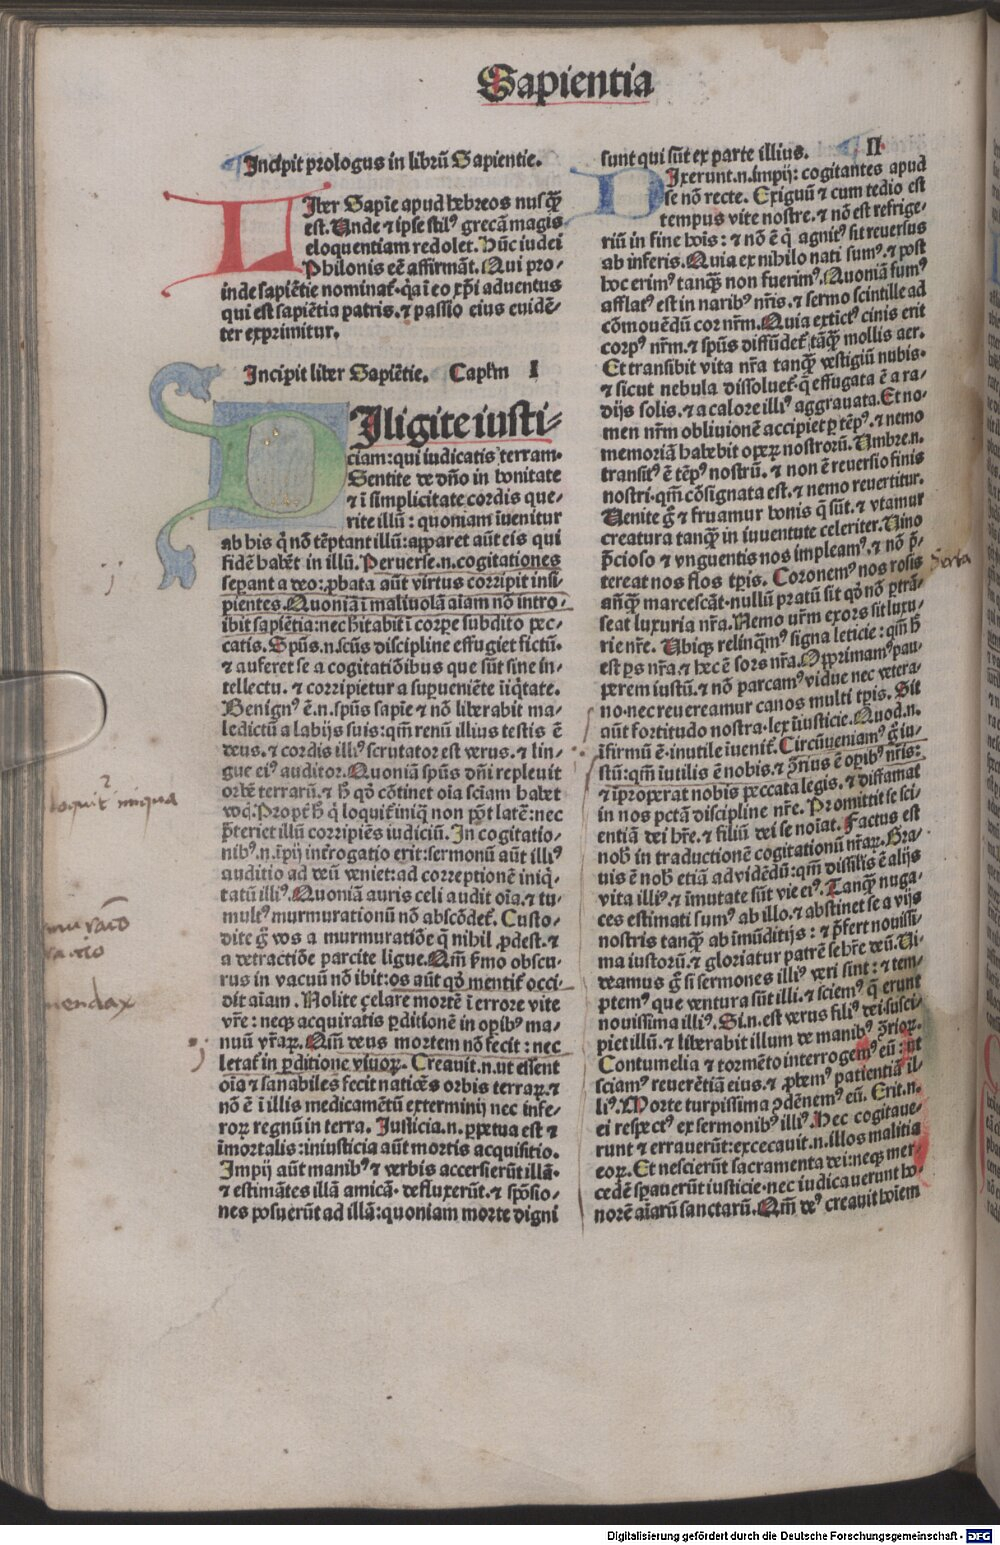 Sapientia
Incipit prologus in librū Sapientie.
LIber Sapīe apud hebreos nusꝙ̄
est. Unde ⁊ ipse stilꝰ grecā magis
eloquentiam redolet. Hūc iudei
Philonis eē affirmāt. Qui pro⸗
inde sapiētie nominat̄·q̇a ī eo xp̄i aduentus
qui est sapiētia patris.⁊ passio eius euidē⸗
ter exprimitur.
Incipit liber Sapiētie. Caplm̄ I
DIligite iusti⸗
ciam: qui iudicatis terram.
Sentite de dn̄o in bonitate
⁊ ī simplicitate cordis que⸗
rite illū: quoniam īuenitur
ab his q̇ nō tēptant illū: apparet aūt eis qui
fidē habēt in illū. Peruerse.n.cogitationes
seꝑant a deo: ꝓbata aūt virtus corripit insi⸗
pientes. Quoniā ī maliuolā aīam nō intro⸗
ibit sapiētia: nec h̄itabit ī corꝑe subdito pec⸗
catis. Spūs.n.scūs discipline effugiet fictū·
⁊ auferet se a cogitatiōibus que sūt sine in⸗
tellectu. ⁊ corripietur a suꝑueniēte īiq̇tate.
Benignꝰ ē.n.spūs sapīe ⁊ nō liberabit ma⸗
ledictū a labijs suis: qm̄ renū illius testis ē
deus.⁊ cordis illiꝰ scrutator est verus.⁊ lin⸗
gue eiꝰ auditor. Quoniā spūs dn̄i repleuit
orbē terrarū.⁊ h̄ qd̓ cōtinet oīa sciam habet
vocꝭ. Propt̄ h̄ q̇ loquit̄ iniq̇ non pōt latē: nec
p̄teriet illū corripiēs iudiciū. In cogitatio⸗
nibꝰ.n.īpij int̄rogatio erit: sermonū aūt illiꝰ
auditio ad deū veniet: ad correptionē iniq̇⸗
tatū illiꝰ. Quoniā auris celi audit oīa.⁊ tu⸗
multꝰ murmurationū nō abscōdet̄. Custo⸗
dite g̊ vos a murmuratiōe q̄ nihil ꝓdest.⁊
a detractiōe parcite ligue. Qm̄ s̄mo obscu⸗
rus in vacuū nō ibit: os aūt qd̓ mentit̄ occi⸗
dit aīam. Nolite çelare mortē ī errore vite
vr̄e: neqꝫ acquiratis ꝑditionē in oꝑibꝰ ma⸗
nuū vr̄aꝝ. Qm̄ deus mortem nō fecit: nec
letat̄ in ꝑditione viuoꝝ. Creauit.n.ut essent
oīa ⁊ sanabiles fecit natiōes orbis terraꝝ.⁊
nō ē ī illis medicamētū exterminij nec infe⸗
roꝝ regnū in terra. Justicia.n.ꝑpetua est ⁊
īmortalis: iniusticia aūt mortis acquisitio.
Impij aūt manibꝰ ⁊ verbis accersierūt illā·
⁊ estimātes illā amicā· defluxerūt.⁊ spōsio⸗
nes posuerūt ad illā: quoniam morte digni
sunt qui sūt ex parte illius. II
DIxerunt.n.impij: cogitantes apud
se nō recte. Exiguū ⁊ cum tedio est
tempus vite nostre.⁊ nō est refrige⸗
riū in fine hoīs: ⁊ nō ē q̇ agnitꝰ sit reuersus
ab inferis. Quia ex nihilo nati sumꝰ.⁊ post
hoc erimꝰ tanqꝫ̄ non fuerimꝰ. Quoniā fumꝰ
afflatꝰ est in naribꝰ nr̄is.⁊ sermo scintille ad
cōmouēdū cor nr̄m. Quia extīctꝰ cinis erit
corpꝰ nr̄m.⁊ spūs diffūdet̄ tāqꝫ̄ mollis aer.
Et transibit vita nr̄a tanqꝫ̄ vestigiū nubis·
⁊ sicut nebula dissoluet̄·q̄ effugata ē a ra⸗
dijs solis.⁊ a calore illiꝰ aggrauata. Et no⸗
men nr̄m obliuionē accipiet ꝑ tēpꝰ.⁊ nemo
memoriā habebit oꝑeꝝ nostrorū. Umbre.n.
transitꝰ ē tēpꝰ nostrū.⁊ non ē reuersio finis
nostri·qm̄ cōsignata est.⁊ nemo reuertitur.
Venite g̊ ⁊ fruamur bonis q̄ sūt.⁊ vtamur
creatura tanqꝫ̄ in iuuentute celeriter. Vino
p̄cioso ⁊ vnguentis nos impleamꝰ.⁊ nō p̄⸗
tereat nos flos tꝑis. Coronemꝰ nos rosis
añqꝫ̄ marcescāt·nullū pratū sit qd̓ nō ꝑtrā⸗
seat luxuria nr̄a. Nemo nr̄m exors sit luxu⸗
rie nr̄e. Ubiqꝫ relinq̄mꝰ signa leticie: qm̄ h̄
est ꝑs nr̄a.⁊ hec ē sors nr̄a. Opprimamꝰ pau⸗
perem iustū.⁊ nō parcamꝰ vidue nec vetera⸗
no·nec reuereamur canos multi tꝑis. Sit
aūt fortitudo nostra·lex īiusticie. Quod.n.
īfirmū ē·inutile īuenit̄. Circūueniamꝰ g̊ iu⸗
stū: qm̄ īutilis ē nobis.⁊ ꝯ̄rius ē oꝑibꝰ nr̄is:
⁊ īproꝑat nobis peccata legis.⁊ diffamat
in nos pctā discipline nr̄e. Promittit se sci⸗
entiā dei hr̄e.⁊ filiū dei se noīat. Factus est
nob̄ in traductionē cogitationū nr̄aꝝ. Gra⸗
uis ē nob̄ etiā ad vidēdū: qm̄ dissīlis ē alijs
vita illiꝰ.⁊ īmutate sūt vie eiꝰ. Tanqꝫ̄ nuga⸗
ces estimati sumꝰ ab illo.⁊ abstinet se a vijs
nostris tanqꝫ̄ ab īmūditijs: ⁊ p̄fert nouissi⸗
ma iustorū.⁊ gloriatur patrē se hr̄e deū. Vi⸗
deamus g̊ si sermones illiꝰ veri sint: ⁊ tem⸗
ptemꝰ que ventura sūt illi.⁊ sciemꝰ q̄ erunt
nouissima illiꝰ. Si.n.est verus filiꝰ dei·susci⸗
piet illū.⁊ liberabit illum de manibꝰ ꝯ̄rioꝝ.
Contumelia ⁊ tormēto interrogemꝰ eū: ut
sciamꝰ reuerētiā eius.⁊ ꝓbemꝰ patientiā il⸗
liꝰ. Morte turpissima ꝯdēnemꝰ eū. Erit.n.
ei respectꝰ ex sermonibꝰ illiꝰ. Hec cogitaue⸗
runt ⁊ errauerūt: excecauit.n.illos malitia
eoꝝ. Et nescierūt sacramenta dei: neqꝫ mer⸗
cedē sꝑauerūt iusticie·nec iudicauerunt ho⸗
norē aīarū sanctarū. Qm̄ deꝰ creauit hoīem
loquit̄ iniqua
mendax
Digitalisierung gefördert durch die Deutsche Forschungsgemeinschaft - DFG